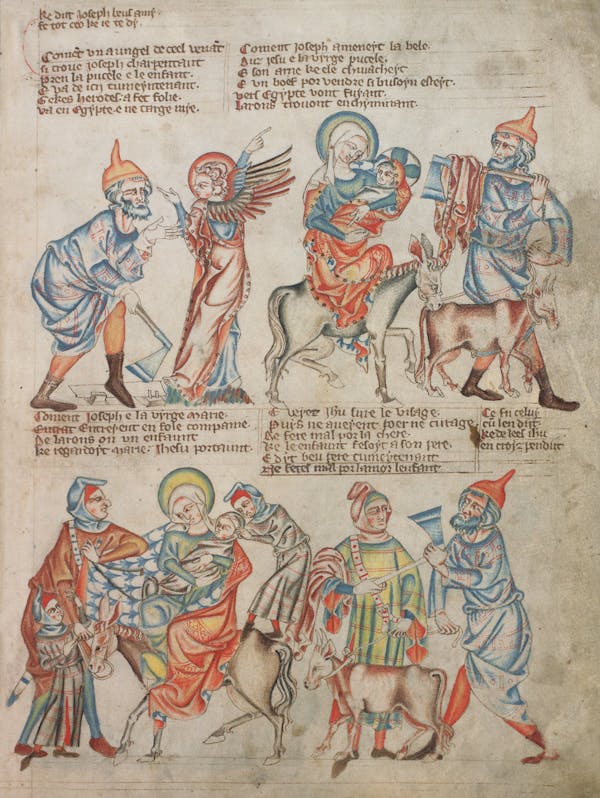 Ke dit Joseph beus amy
fe tot ceo ke ie te dy
Coment un aungel de ceel venat
Si trove Joseph charpentant
Pren la pucele e le enfant
E va de ici tumeyntenant
Herodes a fet folie
va en Egypte e ne targe mie
Coment Joseph ameneyt la bele
Jesu e la vyrge pucele
E son ame ke ele chivacheyt
E un boef por vendre si busoyn esteyt
vers Egypte vont fuyant
larons trovont enchyminant
Coment Joseph e la vyrge marie
Entrepent en fole compaine
De larons ou un enfaunt
Ke regardoyt marie Jhesu portaunt
E veyez Jhu sure le visage
Puys ne aveyent poer ne curage
De fere mal por la chere
Ke le enfaunt fesoyt a son pere
E dyt beu pere tumeyntenant
Ne fetes mal por lamor lenfant
Ce fu celuy
cu len dit
Ke de lees Jhu
en croyz pendut